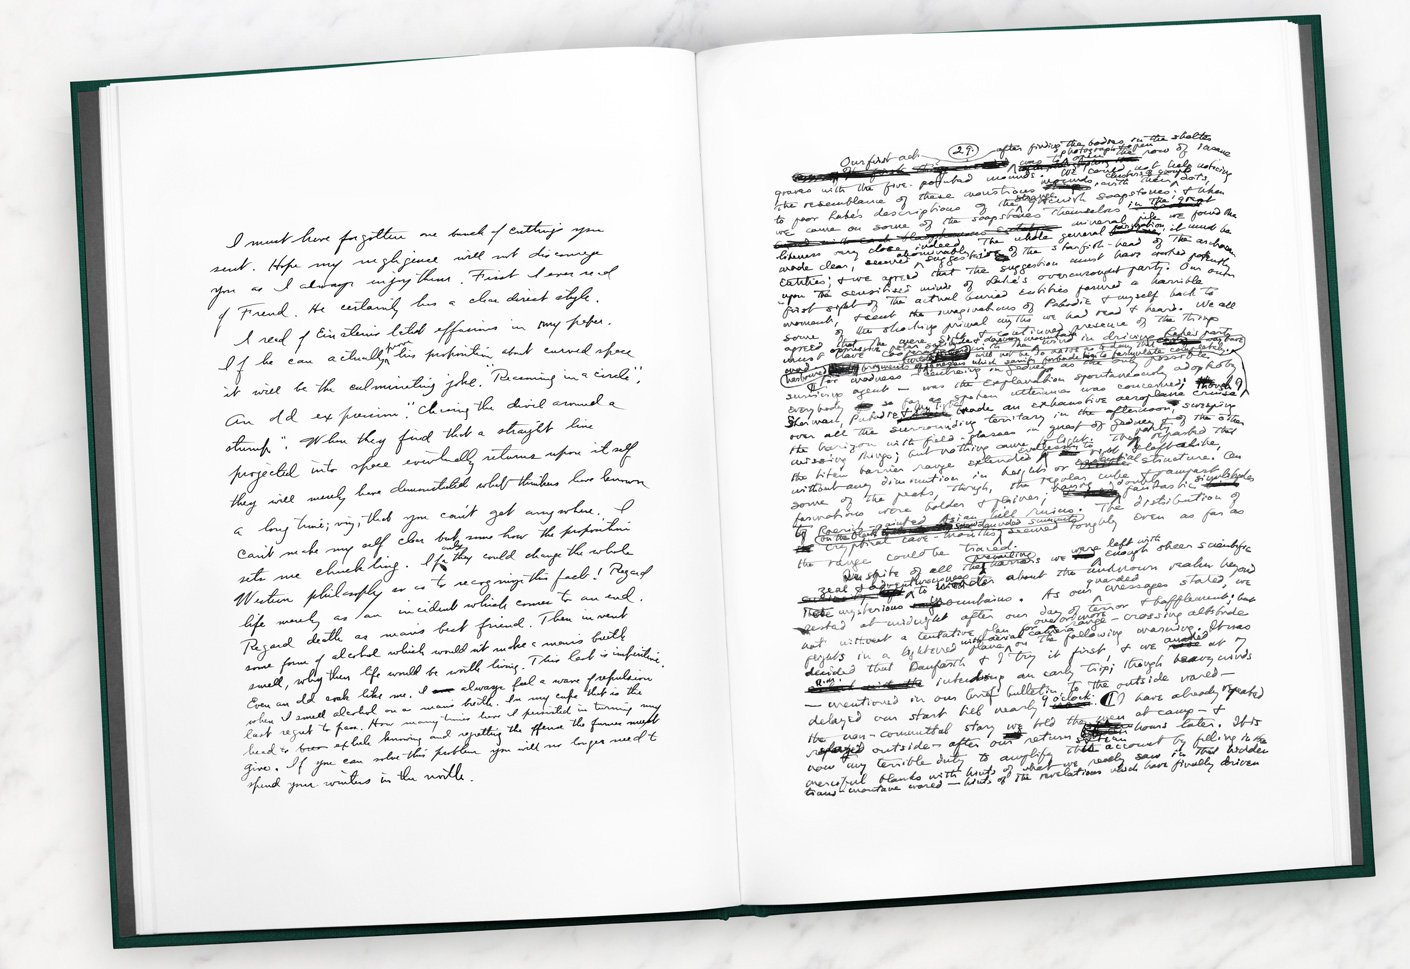 I must have forgotten one bunch of cuttings you
sent. Hope my negligence will not discourage
you as I always enjoy them. First I ever read
of Freud. He certainly has a clear direct style.
I read of Einstein's latest effusions in my paper.
If he can actually prove his proposition about curved space
it will be the culminating joke. "Reasoning in a circle",
An old expression: "Chasing the devil around a
stump". When they find that a straight line
projected into space eventually returns upon itself
they will merely have demonstrated what thinkers have known
a long time; viz; that you can't get anywhere. I
can't make myself clear but some how the proposition
sets me chuckling. If only they could change the whole
Western philosophy so as to recognize this fact! Regard
life merely as an incident which comes to an end.
Regard death as man's best friend. Then invent
some form of alcohol which would not make a man's breath
smell, why then life would be worth living. This last is imperative.
Even an old soak like me. I always feel a wave of repulsion
when I smell alcohol on a man's breath. In my cups that is the
last regret to pass. How many times have I persisted in turning my
head to exhale knowing and regretting the offense the fumes might
give. If you can solve this problem you will no longer need to
spend your winters in the north.
29.
Our first act after finding the bodies in the shelter
was to photograph & open the row of insane
graves with the five-pointed mounds. We could not help noticing
the resemblance of these monstrous mounds, with their clusters of grouped dots,
to poor Lake's descriptions of the strange greenish soapstones; & when
we came on some of the soapstones themselves in the great
mineral pile we found the
likeness very close indeed. The whole general formation, it must be
made clear, seemed abominably suggestive of the starfish-head of the archaean
entities; & we agreed that the suggestion must have worked potently
upon the sensitised minds of Lake's overwrought party. Our own
first sight of the actual buried entities formed a horrible
moment, & sent the imaginations of Pabodie & myself back to
some of the shocking primal myths we had read & heard. We all
agreed that the mere sight & continued presence of the things
must have coöperated with the oppressive polar solitude & daemon mountain wind in driving Lake's party
mad
for madness centreing in Gedney as the only possible
surviving agent — was the explanation spontaneously adopted by
everybody so far as spoken utterance was concerned; though
Sherman, Pabodie & McTighe made an exhaustive aëroplane cruise
over all the surrounding territory in the afternoon, sweeping
the horizon with field-glasses in quest of Gedney & of the other
missing things; but nothing came to light. The party reported that
the titan barrier range extended endlessly to right & left alike,
without any diminution in height or essential structure. On
some of the peaks, though, the regular cube & rampart
formations were bolder & plainer; having doubly fantastic similitudes
to Roerich-painted Asian hill ruins. The distribution of
cryptical cave-mouths on the black snow-denuded summits seemed roughly even as far as
the range could be traced.
In spite of all the prevailing horrors we were left with
enough sheer scientific
zeal & adventurousness to wonder about the unknown realm beyond
those mysterious mountains. As our guarded messages stated, we
rested at midnight after our day of terror & bafflement; but
not without a tentative plan for one or more range-crossing altitude
flights in a lightened plane with aërial camera the following morning. It was
decided that Danforth & I try it first, & we awaked at 7
a.m. intending an early trip; though heavy winds
— mentioned in our brief bulletin to the outside world —
delayed our start till nearly 9 o'clock. I have already repeated
the non-committal story we told the men at camp — &
relayed outside — after our return hours later. It is
now my terrible duty to amplify this account by filling in the
merciful blanks with hints of what we really saw in that hidden
trans-montane world — hints of the revelations which have finally driven